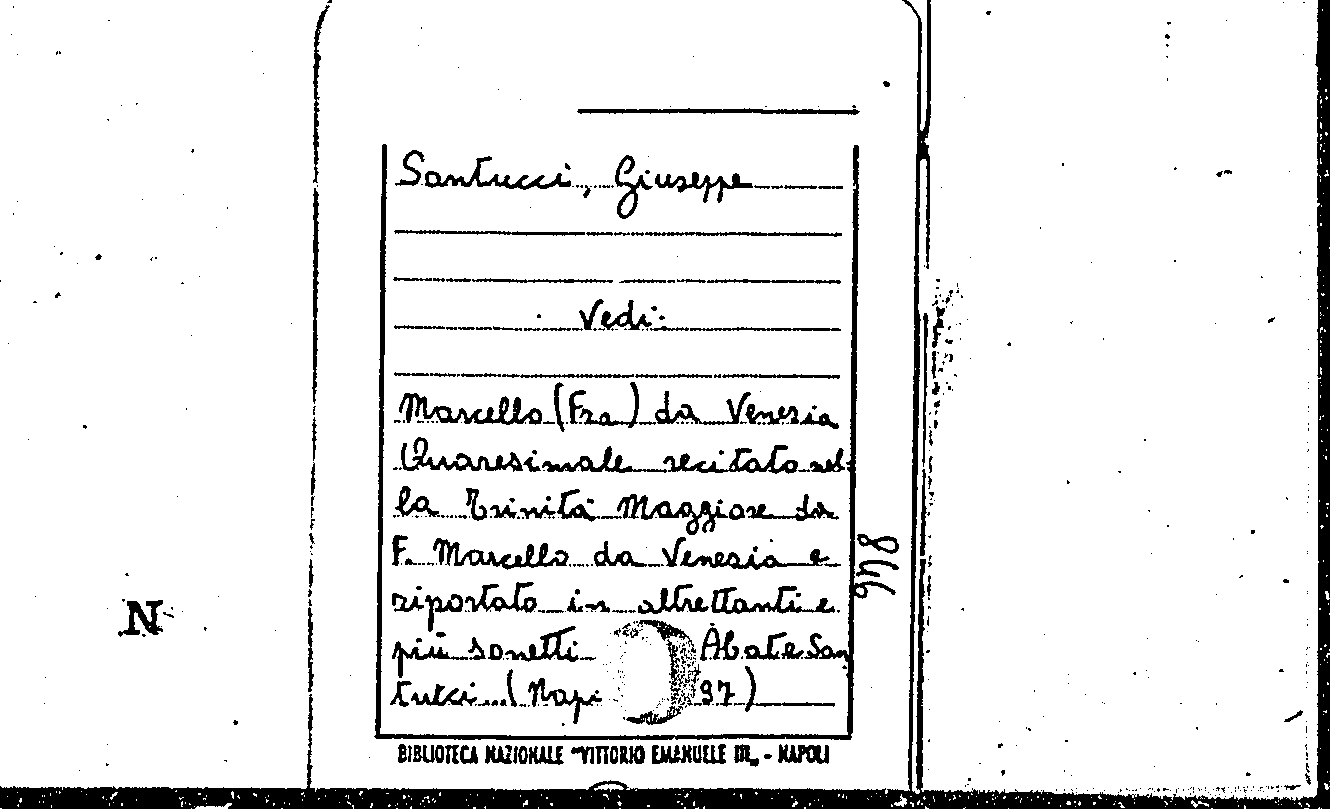 Santucci, Giuseppe
Vedi:
Marcello (Fra) da Venezia
Quaresimale recitato nel-
la Trinità Maggiore da
F. Marcello da Venezia e
riportato in altrettanti e
più sonetti Abate San
tucci... (Napi 97)
846
N
BIBLIOTECA NAZIONALE "VITTORIO EMANUELE III„ - NAPOLI